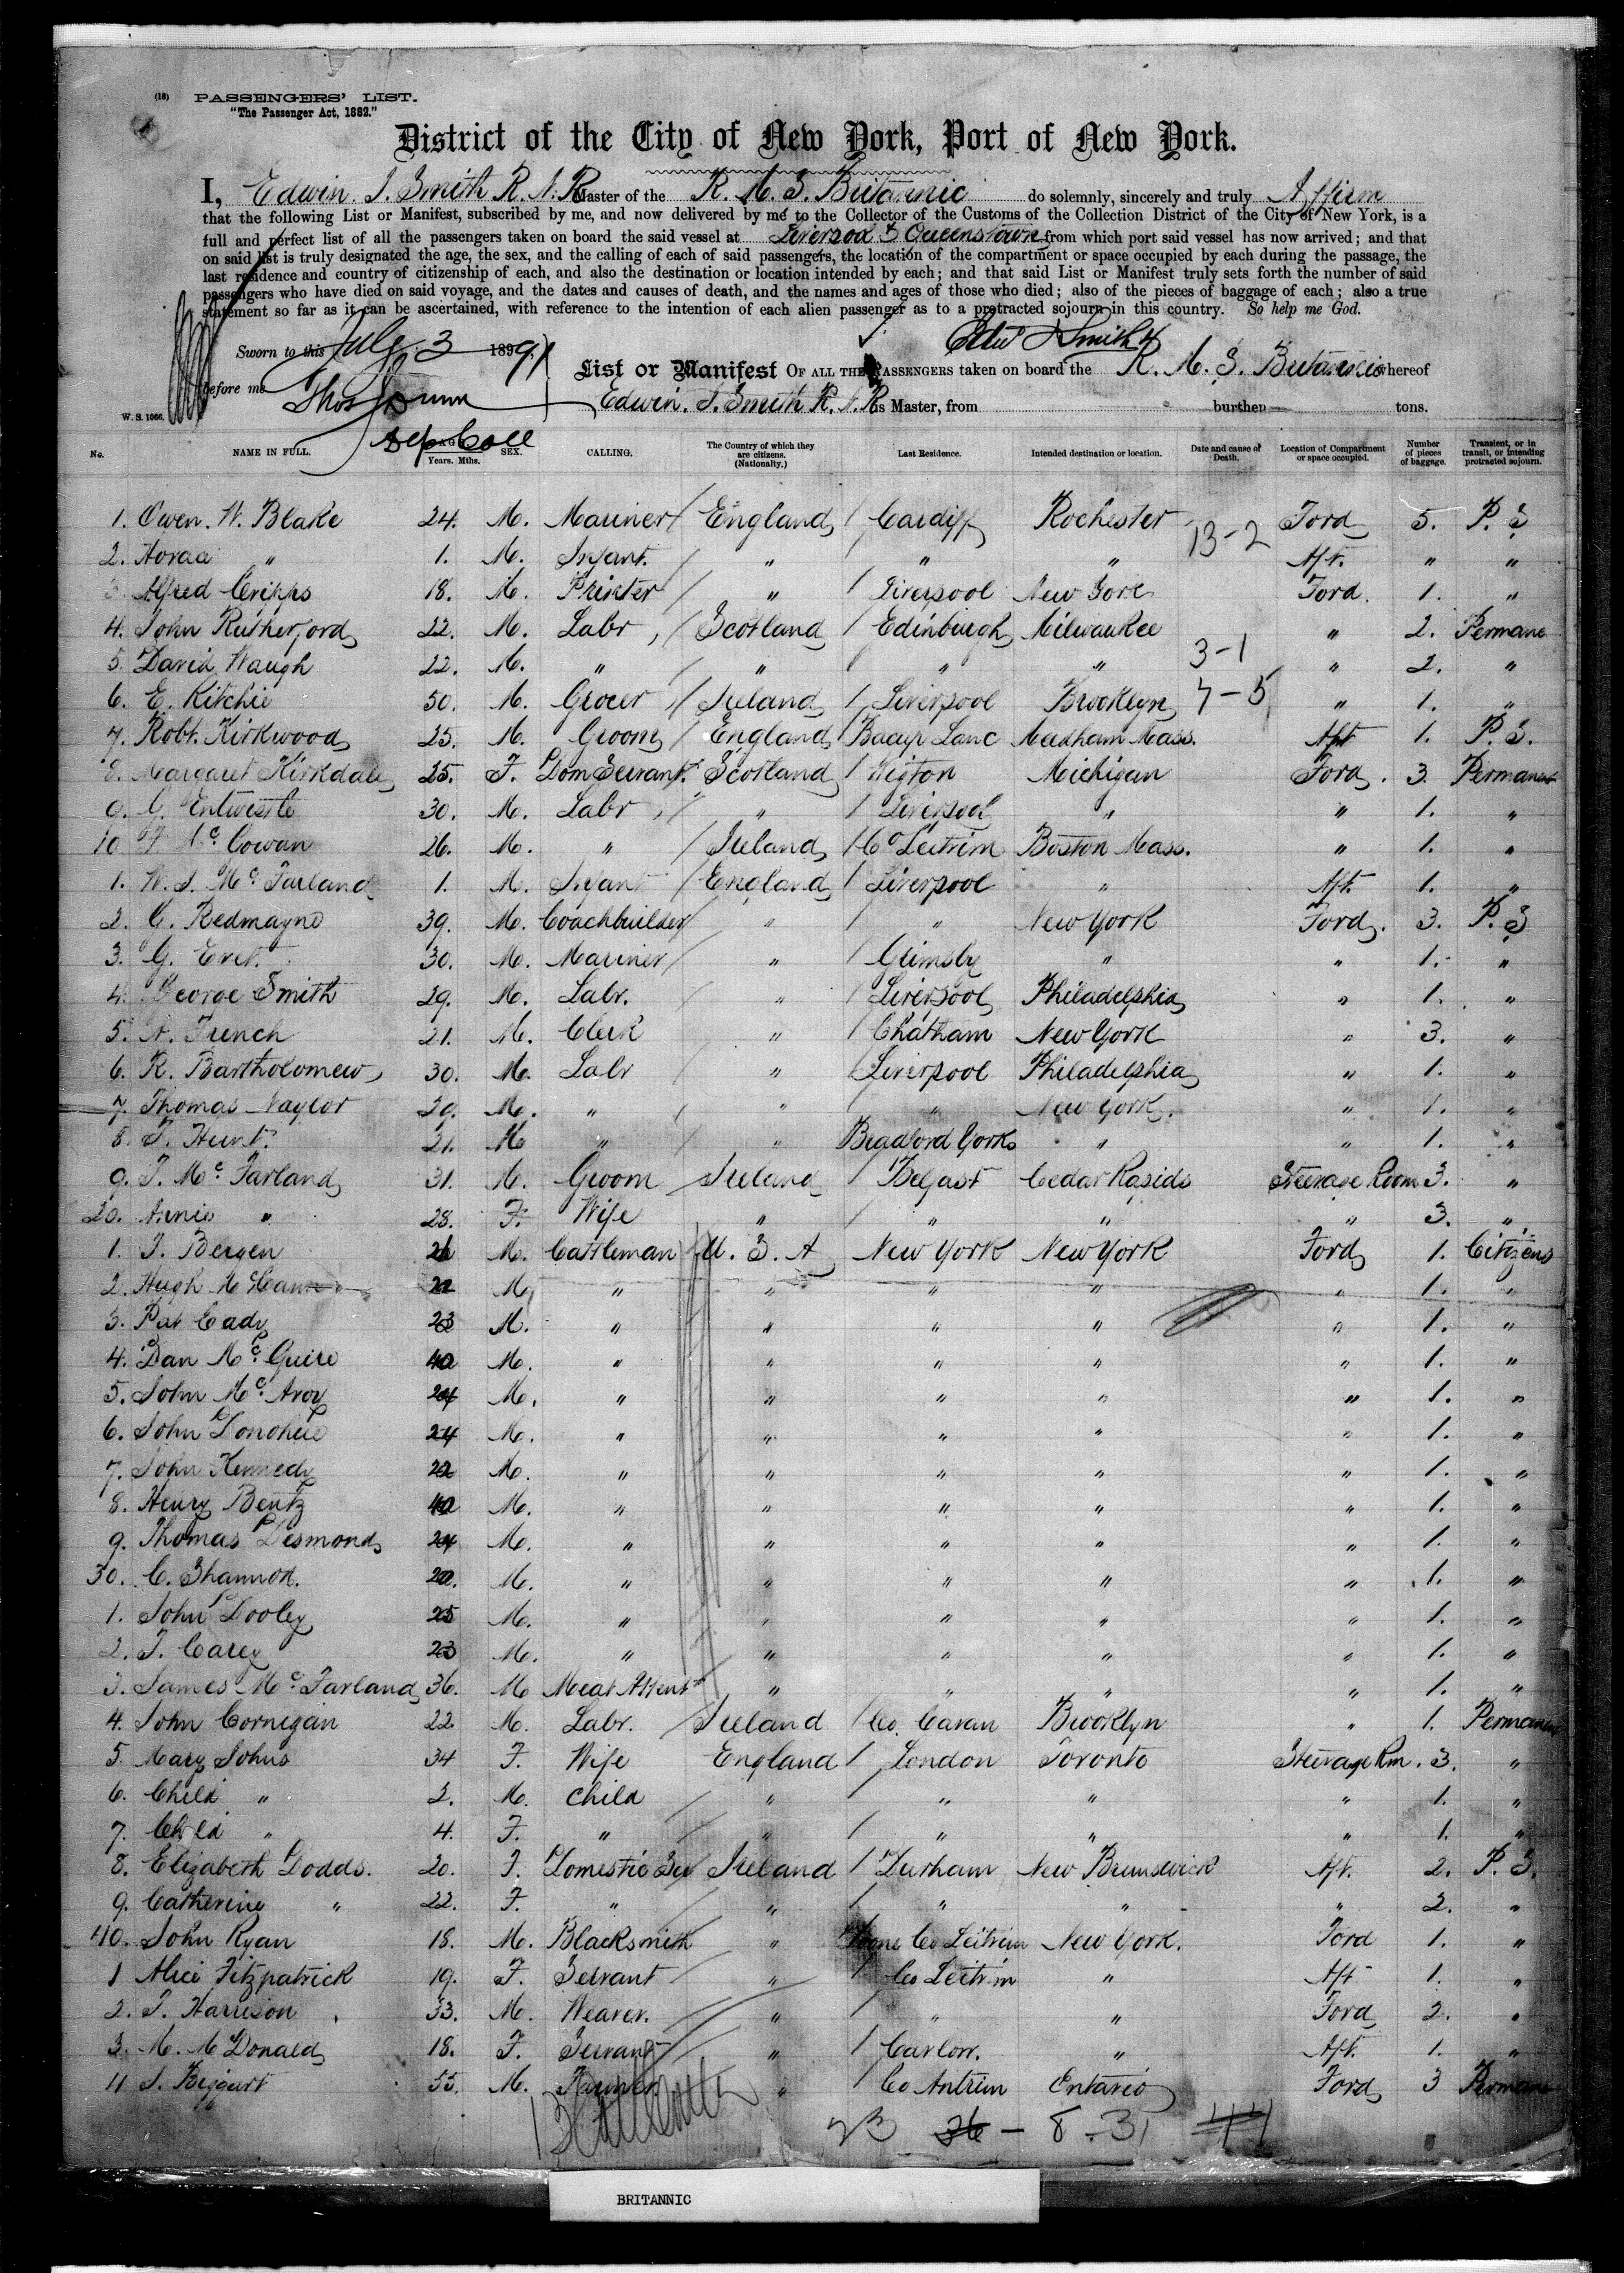 (18) PASSENGERS' LIST.
"The Passenger Act, 1882."
District of the City of New York, Port of New York.
I, Edwin J. Smith R. N. R. Master of the R. M. S. Britannic do solemnly, sincerely and truly Affirm
that the following List or Manifest, subscribed by me, and now delivered by me to the Collector of the Customs of the Collection District of the City of New York, is a
full and perfect list of all the passengers taken on board the said vessel at Liverpool & Queenstown from which port said vessel has now arrived; and that
on said list is truly designated the age, the sex, and the calling of each of said passengers, the location of the compartment or space occupied by each during the passage, the
last residence and country of citizenship of each, and also the destination or location intended by each; and that said List or Manifest truly sets forth the number of said
passengers who have died on said voyage, and the dates and causes of death, and the names and ages of those who died; also of the pieces of baggage of each; also a true
statement so far as it can be ascertained, with reference to the intention of each alien passenger as to a protracted sojourn in this country. So help me God.
Edw J Smith
Sworn to this July 3 1891
List or Manifest OF ALL THE PASSENGERS taken on board the R. M. S. Britannic whereof
before me Thos Dunn
Edwin. J. Smith R. N. R. is Master, from burthen tons.
W. S. 1066.
Dep Coll
No. NAME IN FULL. AGE Years. Mths. SEX. CALLING. The Country of which they are citizens. (Nationality.) Last Residence. Intended destination or location. Date and cause of Death. Location of Compartment or space occupied. Number of pieces of baggage. Transient, or in transit, or intending protracted sojourn.
1. Owen. W. Blake 24. M. Mariner / England / Cardiff Rochester Ford 5. P. S
13-2
2. Horace " 1. M. Infant. / " " " Aft. " "
3 Alfred Cripps 18. M. Printer / " / Liverpool New York Ford. 1. "
4. John Rutherford 22. M. Labr / Scotland / Edinburgh Milwaukee " 2. Permane
5. David Waugh 22. M. " / " / " " 3-1 " 2. "
6. E. Ritchie 50. M. Grocer / Ireland / Liverpool Brooklyn 7-5 " 1. "
7. Robt. Kirkwood 25. M. Groom / England / Bacup Lanc Mass. Aft 1. P. S.
8. Margaret Kirkdale 25. F. Dom Servant. Scotland / Wigton Michigan Ford. 3. Permanent
9. G. Entwistle 30. M. Labr / " / Liverpool " " 1. "
10 Mc Cowan 26. M. " / Ireland / Co Leitrim Boston Mass. " 1. "
1. W. J. Mc Farland 1. M. Infant / England / Liverpool " Aft. 1. "
2. G. Redmayne 39. M. Coachbuilder / " / " New York Ford. 3. P. S
3. G. 30. M. Mariner / " / Grimsby " " 1. "
4. George Smith 29. M. Labr. / " / Liverpool Philadelphia " 1. "
5. A. French 21. M. Clerk / " / Chatham New York " 3. "
6. R. Bartholomew 30. M. Labr / " / Liverpool Philadelphia " 1. "
7. Thomas Naylor 29. M. " / " / " New York. " 1. "
8. T. Hunt. 21. M " / " Bradford Yorks " " 1. "
9. J. Mc Farland 31. M. Groom / Ireland / Belfast Cedar Rapids Steerage Room 3. "
20. Annie " 28. F. Wife " / " " " 3. "
1. J. Bergen 26 M. Cattleman U. S. A New York New York Ford 1. Citizens
2. Hugh Mc Cann 22 M. " " " " " 1. "
3. Pat Cady 23 M. " " " " " 1. "
4. Dan Mc Guire 40 M. " " " " " 1. "
5. John Mc Avoy 24 M. " " " " " 1. "
6. John Donohue 24 M. " " " " " 1. "
7. John Kennedy 22 M. " " " " " 1. "
8. Henry Bentz 40 M. " " " " " 1. "
9. Thomas Desmond 24 M. " " " " " 1. "
30. C. Shannon. 20. M. " " " " " 1. "
1. John Dooley 25 M. " " " " " 1. "
2. T. Carey 23 M. " " " " " 1. "
3. James Mc Farland 36. M Meat " " " " 1. "
4. John Cornegan 22 M. Labr. / Ireland / Co. Cavan Brooklyn " 1. Permanen
5. Mary Johns 34 F. Wife England / London Toronto Steerage Rm. 3. "
6. Child " 2. M. Child / " / " " " 1. "
7. Child " 4. F. " / " / " " " 1. "
8. Elizabeth Dodds. 20. F. Domestic Ser Ireland / Durham New Brunswick Aft. 2. P. S.
9. Catherine " 22. F. " / " / " " " 2. "
40. John Ryan 18. M. Blacksmith " Co Leitrim New York. Ford 1. "
1 Alice Fitzpatrick 19. F. Servant / " / Co Leitrim " Aft 1. "
2. J. Harrison 33. M. Weaver. / " / " " Ford 2. "
3. M. Mc Donald 18. F. Servant / " / Carlow. " Aft. 1. "
4 J. Biggart 55. M. Farmer " / Co Antrim Ontario Ford 3 Permane
23 36 - 8. 31 44
BRITANNIC